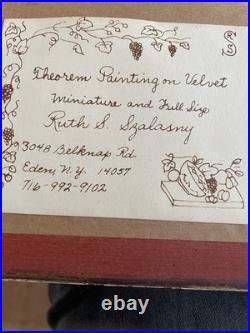 Theorem Painting on Velvet
Miniature and Full Size
Ruth S. Szalasny
3048 Belknap Rd.
Eden, N.Y. 14057
716-992-9102